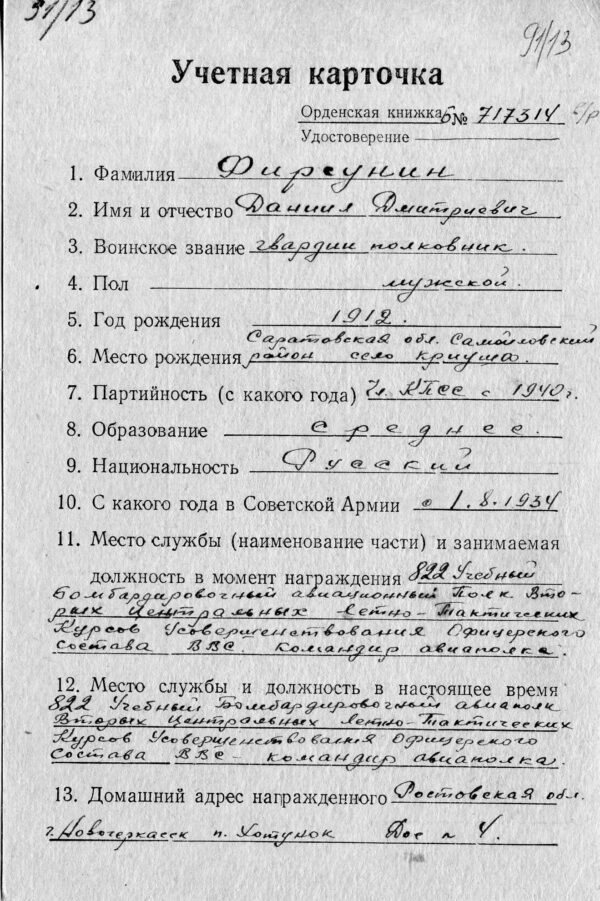 91/13
91/13
Учетная карточка
Орденская книжка б№ 717314
Удостоверение
1. Фамилия Фирсунин
2. Имя и отчество Даниил Дмитриевич
3. Воинское звание гвардии полковник.
4. Пол мужской.
5. Год рождения 1912.
Саратовская обл. Самойловский
6. Место рождения район село Криуша.
7. Партийность (с какого года) Чл. КПСС с 1940 г.
8. Образование среднее.
9. Национальность Русский
10. С какого года в Советской Армии с 1.8.1934
11. Место службы (наименование части) и занимаемая
должность в момент награждения 822 Учебный
Бомбардировочный авиационный Полк Вто-
рых Центральных Летно-Тактических
Курсов Усовершенствования Офицерского
состава ВВС. Командир авиаполка.
12. Место службы и должность в настоящее время
822 Учебный Бомбардировочный авиаполк
Вторых Центральных Летно-Тактических
Курсов Усовершенствования Офицерского
Состава ВВС - командир авиаполка.
13. Домашний адрес награжденного Ростовская обл.
г. Новочеркасск п. Хотунок Дос № 4.